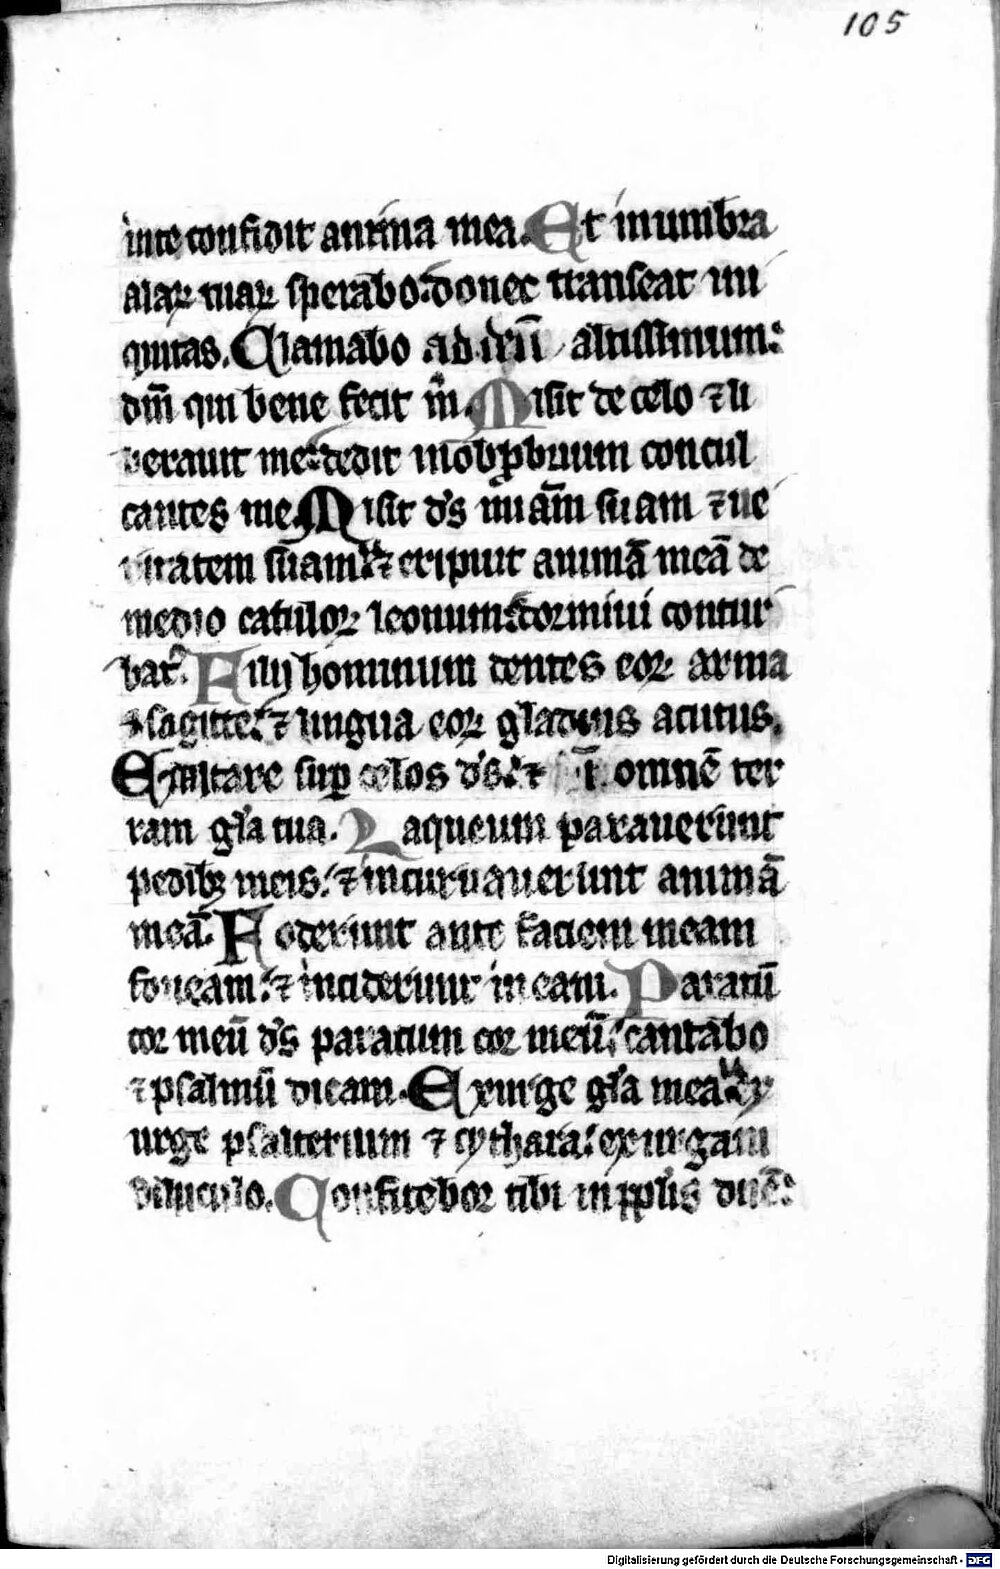 105
inte confidit anima mea. Et in umbra
alaꝝ tuaꝝ sperabo: donec transeat ini
quitas. Clamabo ad dm̄ altissimum:
dm̄ qui bene fecit m̄. Misit de celo ⁊ li
berauit me: dedit in obꝓbrium concul
cantes me. Misit ds̄ mīam suam ⁊ ue
ritatem suam: ⁊ eripuit animā meā de
medio catuloꝝ leonum: dormiui contur
bat᷒. Filij hominum dentes eoꝝ arma
⁊ sagitte: ⁊ lingua eoꝝ gladius acutus.
Exaltare suꝑ celos ds̄: ⁊ ī omnē ter
ram gl̄a tua. Laqueum parauerunt
pedibꝫ meis: ⁊ incuruauerunt animā
meā. Foderunt ante faciem meam
foueam: ⁊ inciderunt in eam. Paratū
cor meū ds̄ paratum cor meū: cantabo
⁊ psalmū dicam. Exurge gl̄a mea: ex
urge psalterium ⁊ cythara: exurgam
diluculo. Confitebor tibi in ppl̄is dn̄e:
Digitalisierung gefördert durch die Deutsche Forschungsgemeinschaft - DFG